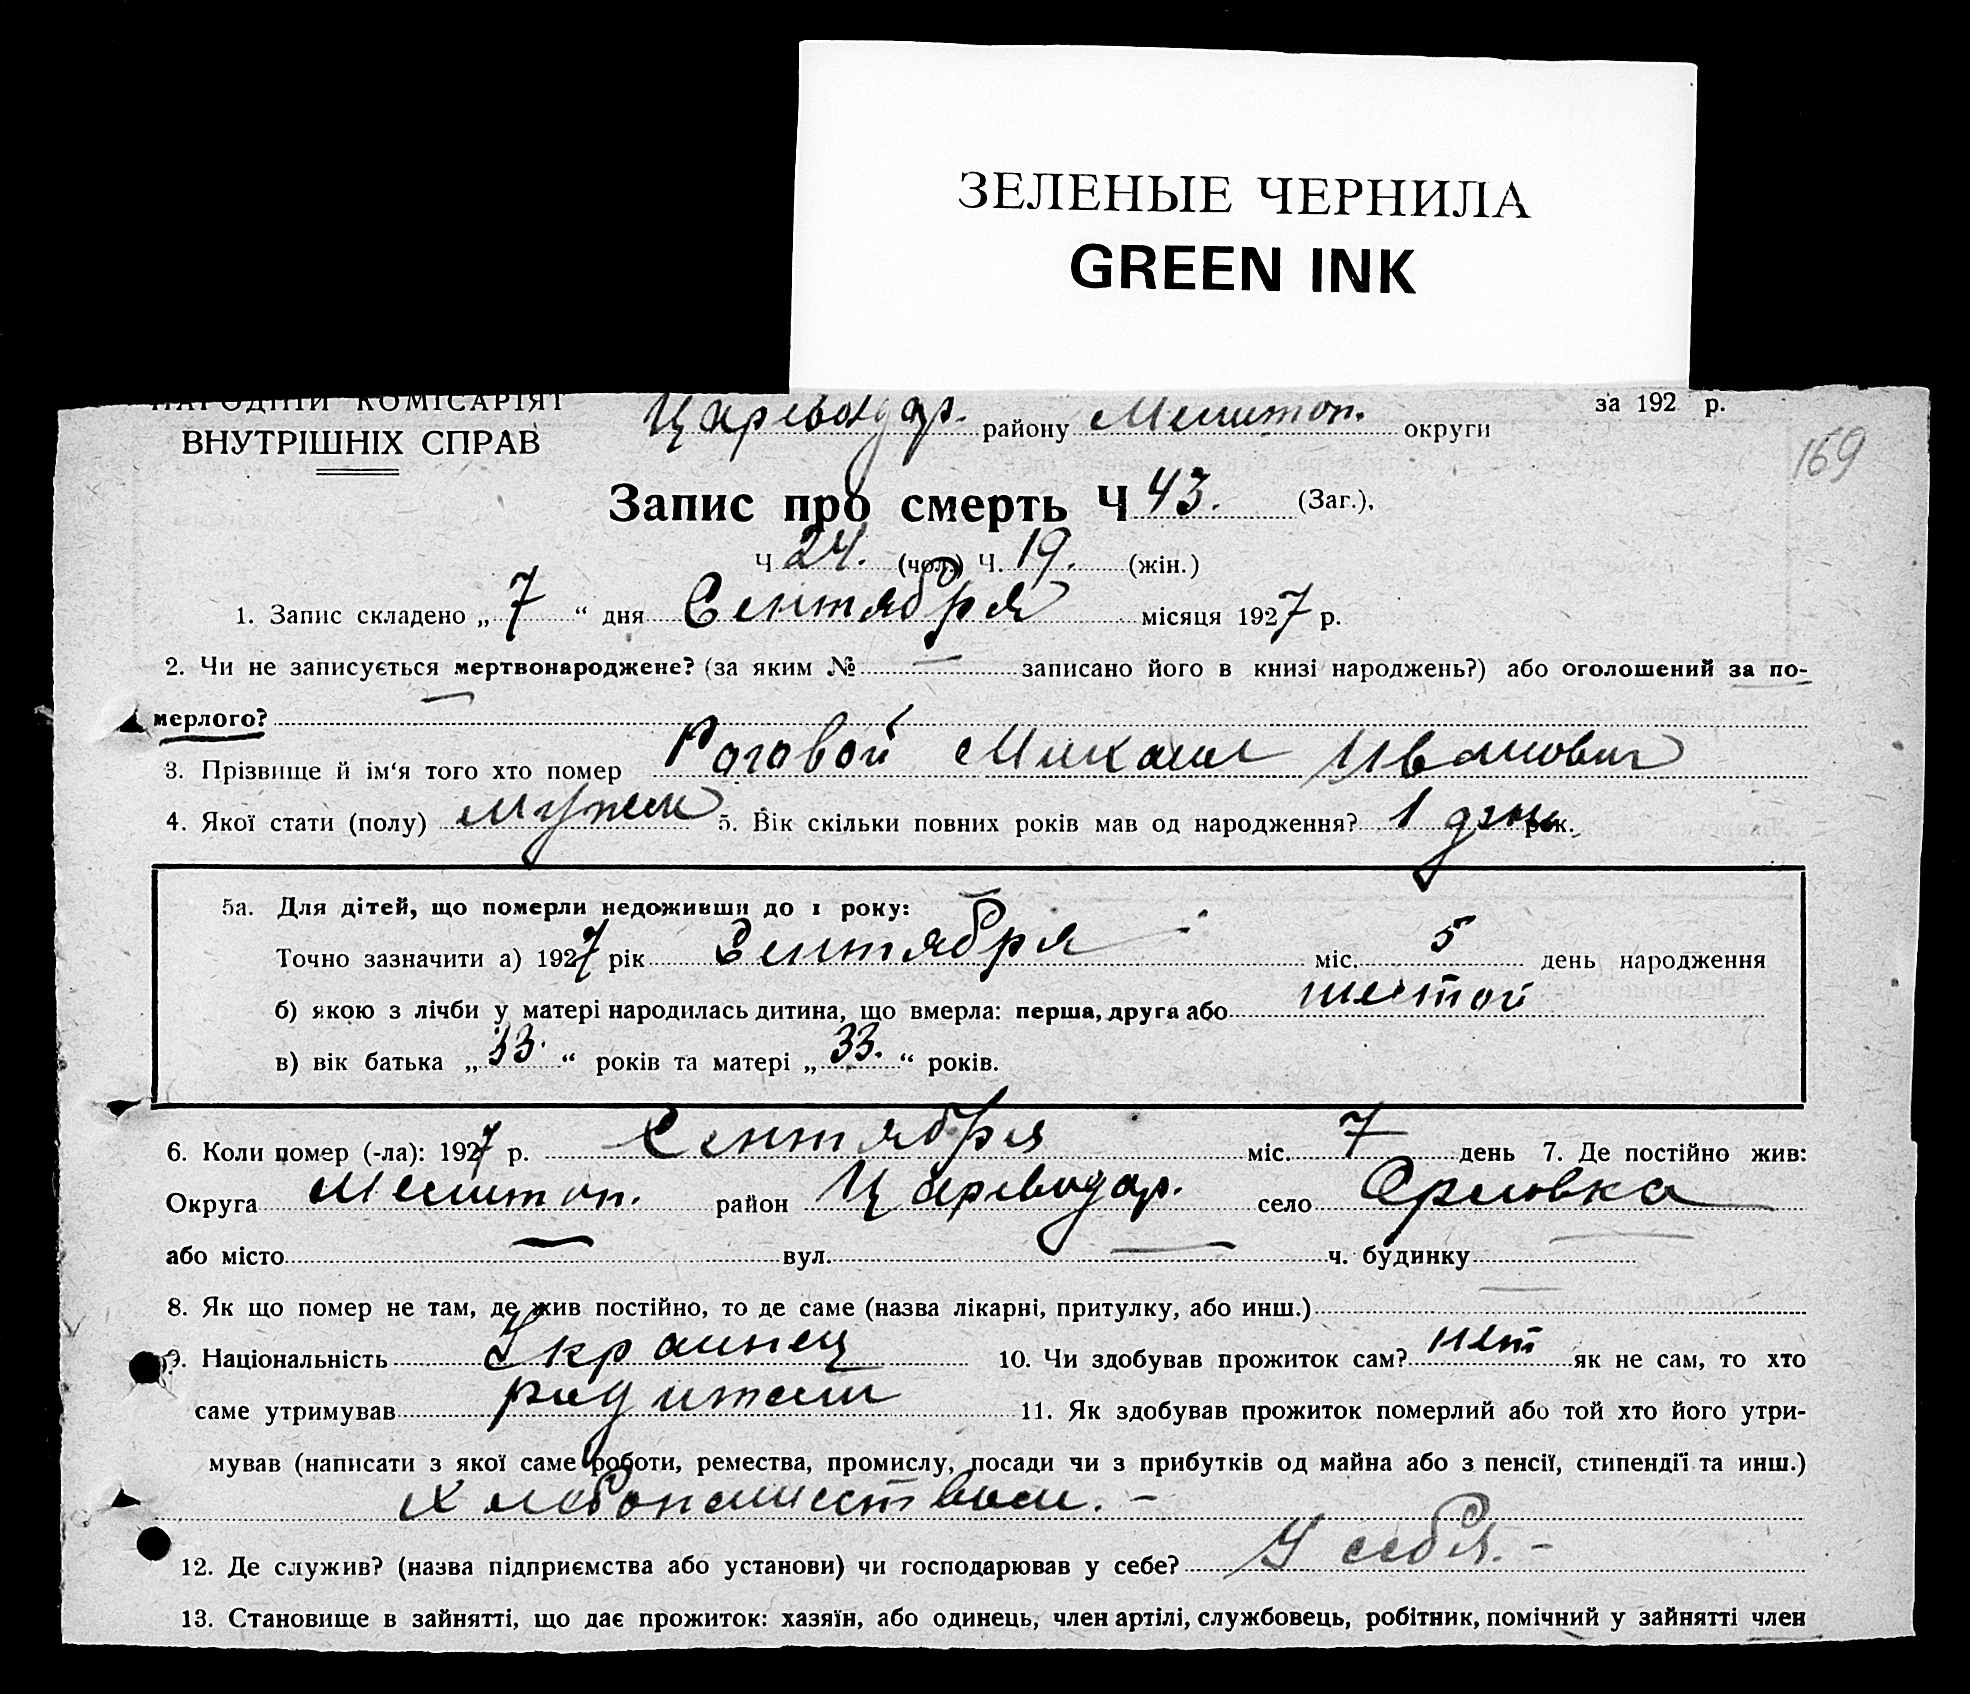 ЗЕЛЕНЫЕ ЧЕРНИЛА
GREEN INK
НАРОДНІЙ КОМІСАРІЯТ
ВНУТРІШНІХ СПРАВ
Цареводар. району Мелитоп. округи
за 192 р.
169
Запис про смерть Ч 43. (Заг.).
Ч 24. (чол.) Ч. 19. (жін.)
1. Запис складено „ 7 “ дня Сентября місяця 1927 р.
2. Чи не записується мертвонароджене? (за яким № — записано його в книзі народжень?) або оголошений за по-
мерлого? —
3. Прізвище й ім'я того хто помер Роговой Михаил Иванович
4. Якої стати (полу) мужск 5. Вік скільки повних років мав од народження? 1 день рок.
5а. Для дітей, що померли недоживши до 1 року:
Точно зазначити а) 1927 рік Сентября міс. 5 день народження
б) якою з лічби у матері народилась дитина, що вмерла: перша, друга або шестой
в) вік батька „ 33. “ років та матері „ 33. “ років.
6. Коли помер (-ла): 1927 р. Сентября міс. 7 день 7. Де постійно жив:
Округа Мелитоп. район Цареводар. село Орловка
або місто — вул. — ч. будинку —
8. Як що помер не там, де жив постійно, то де саме (назва лікарні, притулку, або инш.) —
9. Національність Украинец 10. Чи здобував прожиток сам? нет як не сам, то хто
саме утримував родители 11. Як здобував прожиток померлий або той хто його утри-
мував (написати з якої саме роботи, ремества, промислу, посади чи з прибутків од майна або з пенсії, стипендії та инш.)
Хлебопашеством. -
12. Де служив? (назва підприємства або установи) чи господарював у себе? У себя. -
13. Становище в зайнятті, що дає прожиток: хазяїн, або одинець, член артілі, службовець, робітник, помічний у зайнятті член